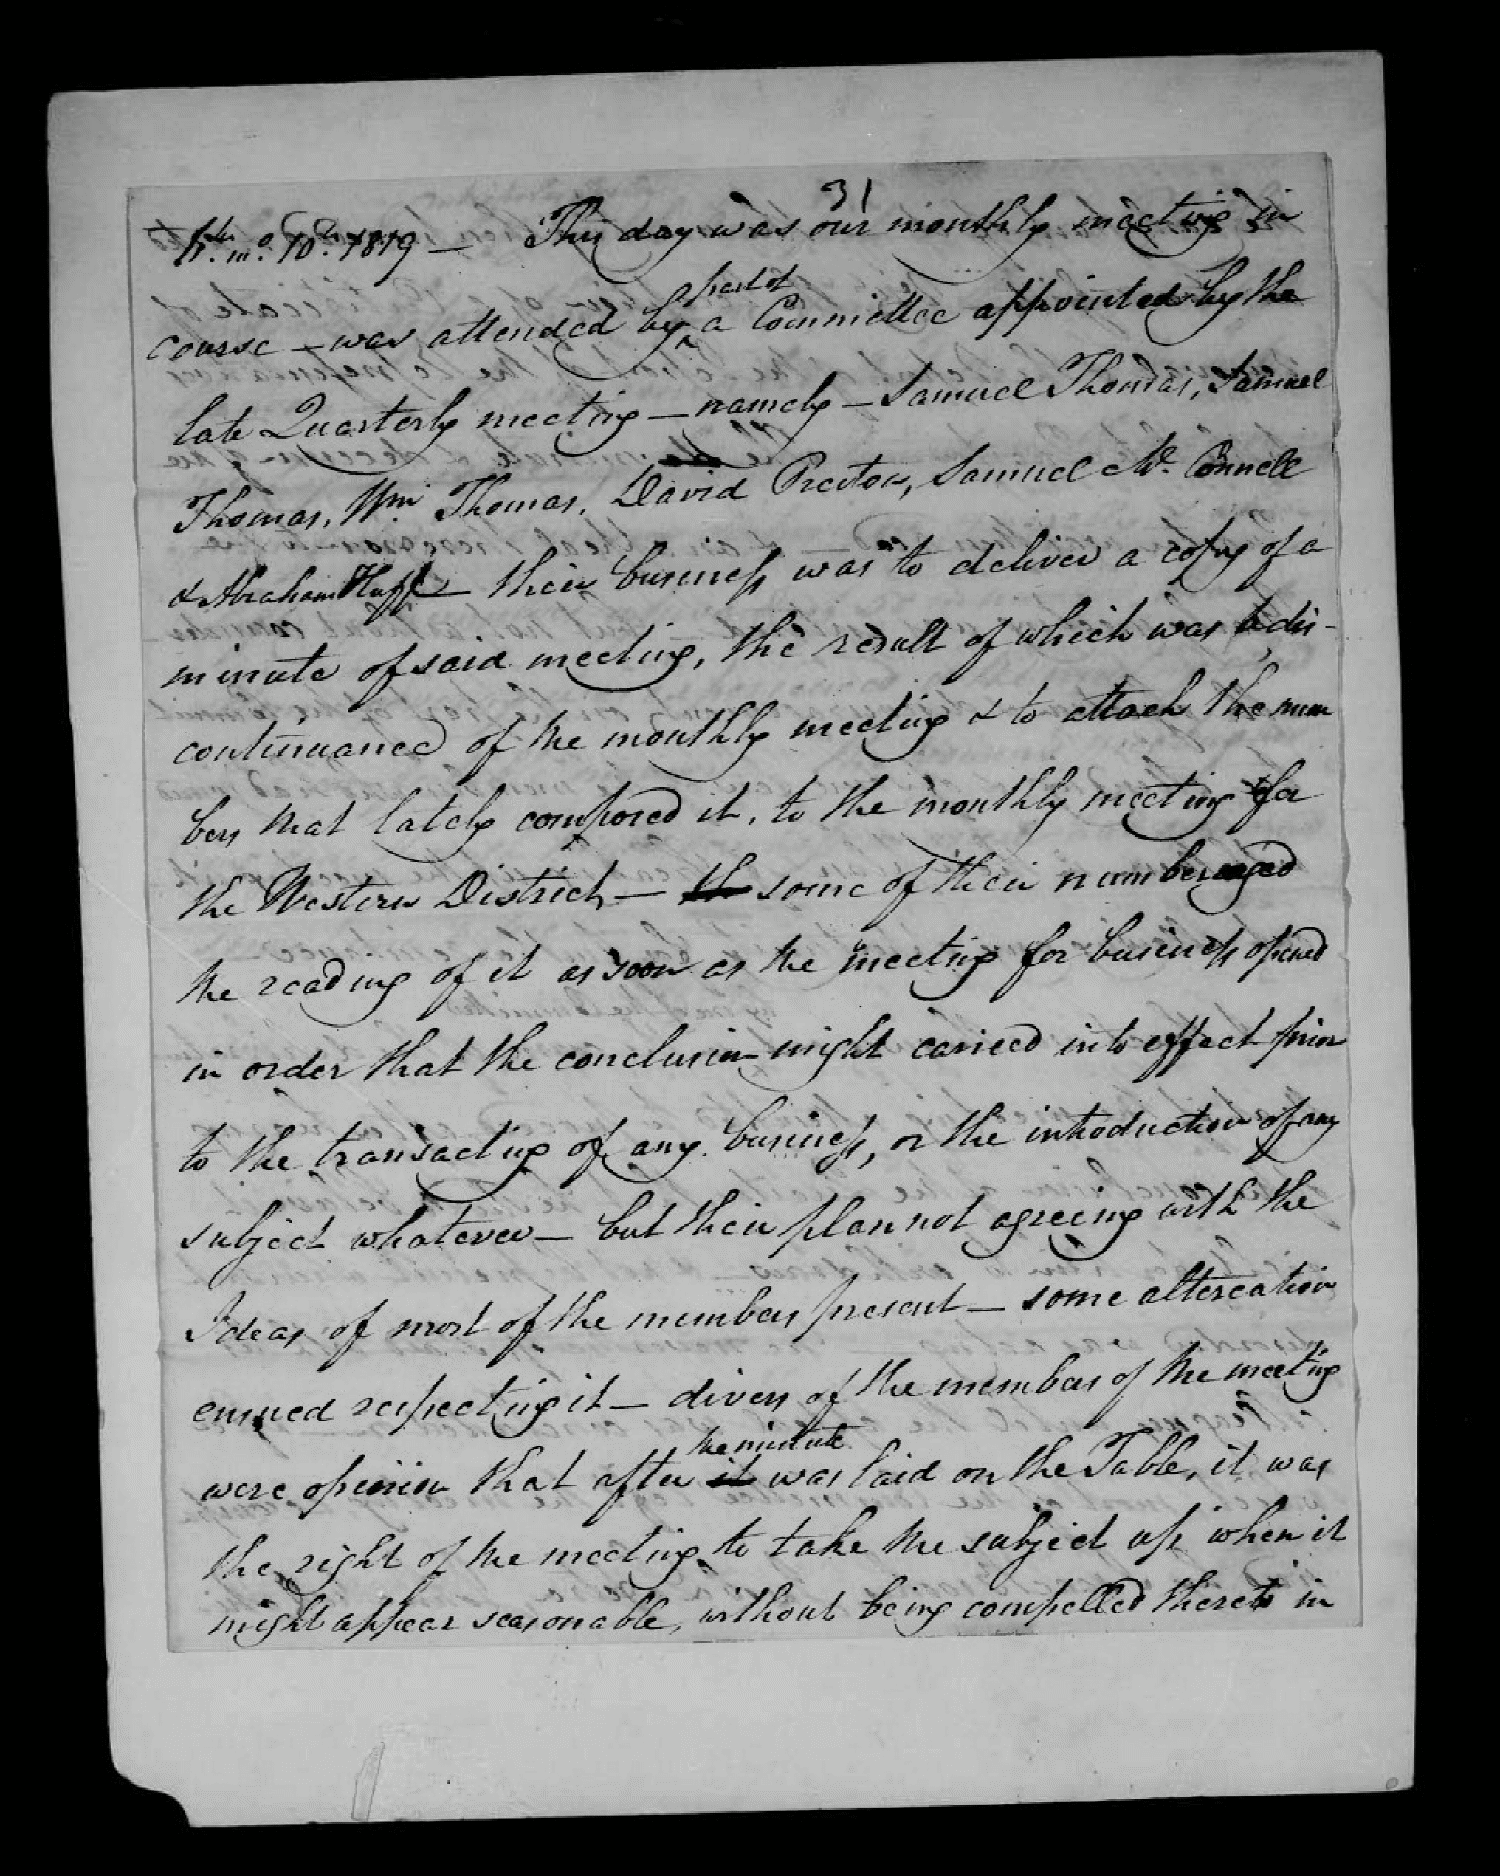 31
4th. mo. 10th. 1819 — This day was our monthly meeting in
course — was attended by part of a Committee appointed by the
late Quarterly meeting — namely — Samuel Thomas, Samuel
Thomas, Wm. Thomas, David Proctor, Samuel Mc. Connell
& Abraham Huff — their business was to deliver a copy of a
minute of said meeting, the result of which was a dis-
continuance of the monthly meeting & to attach the mem
bers that lately composed it, to the monthly meeting for
the Western District — th some of their number urged
the reading of it as soon as the meeting for business opened
in order that the conclusion might carried into effect prior
to the transacting of any business, or the introduction of any
subject whatever — but their plan not agreeing with the
Ideas of most of the members present — some altercation
ensued respecting it — divers of the members of the meeting
were opinion that after it the minute was laid on the Table, it was
the right of the meeting to take the subject up when it
might appear seasonable, without being compelled thereto in